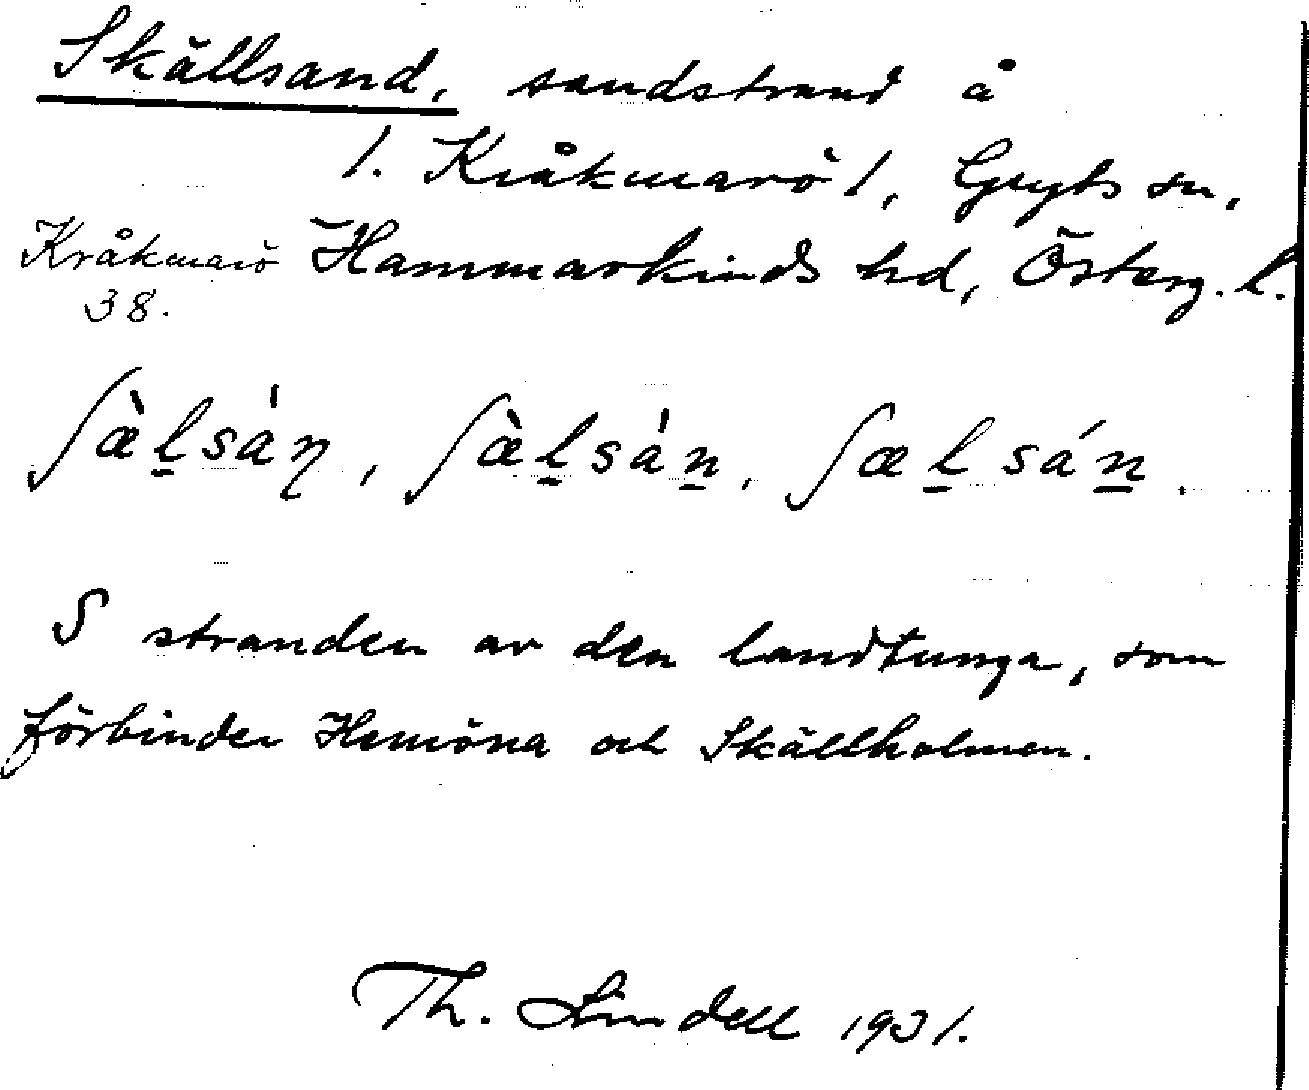 Skällsand, sandstrand å
1. Kråkmarö 1, Gryts sn,
Kråkmarö Hammarkinds hd, Österg. l.
38.
ʃæ̀l̠sá̍ɳ, ʃæ̀l̠sá̍n̠, ʃæl̠sán̠.
S stranden av den landtunga, som
förbinder Hemöna och Skällholmen.
Th. Lindell 1931.